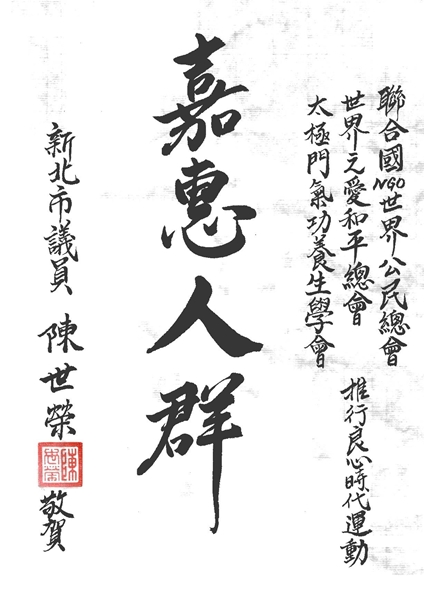 聯合國NGO世界公民總會
世界元愛和平總會
太極門氣功養生學會
推行良心時代運動
嘉惠人群
新北市議員 陳世榮 敬賀
陳世榮